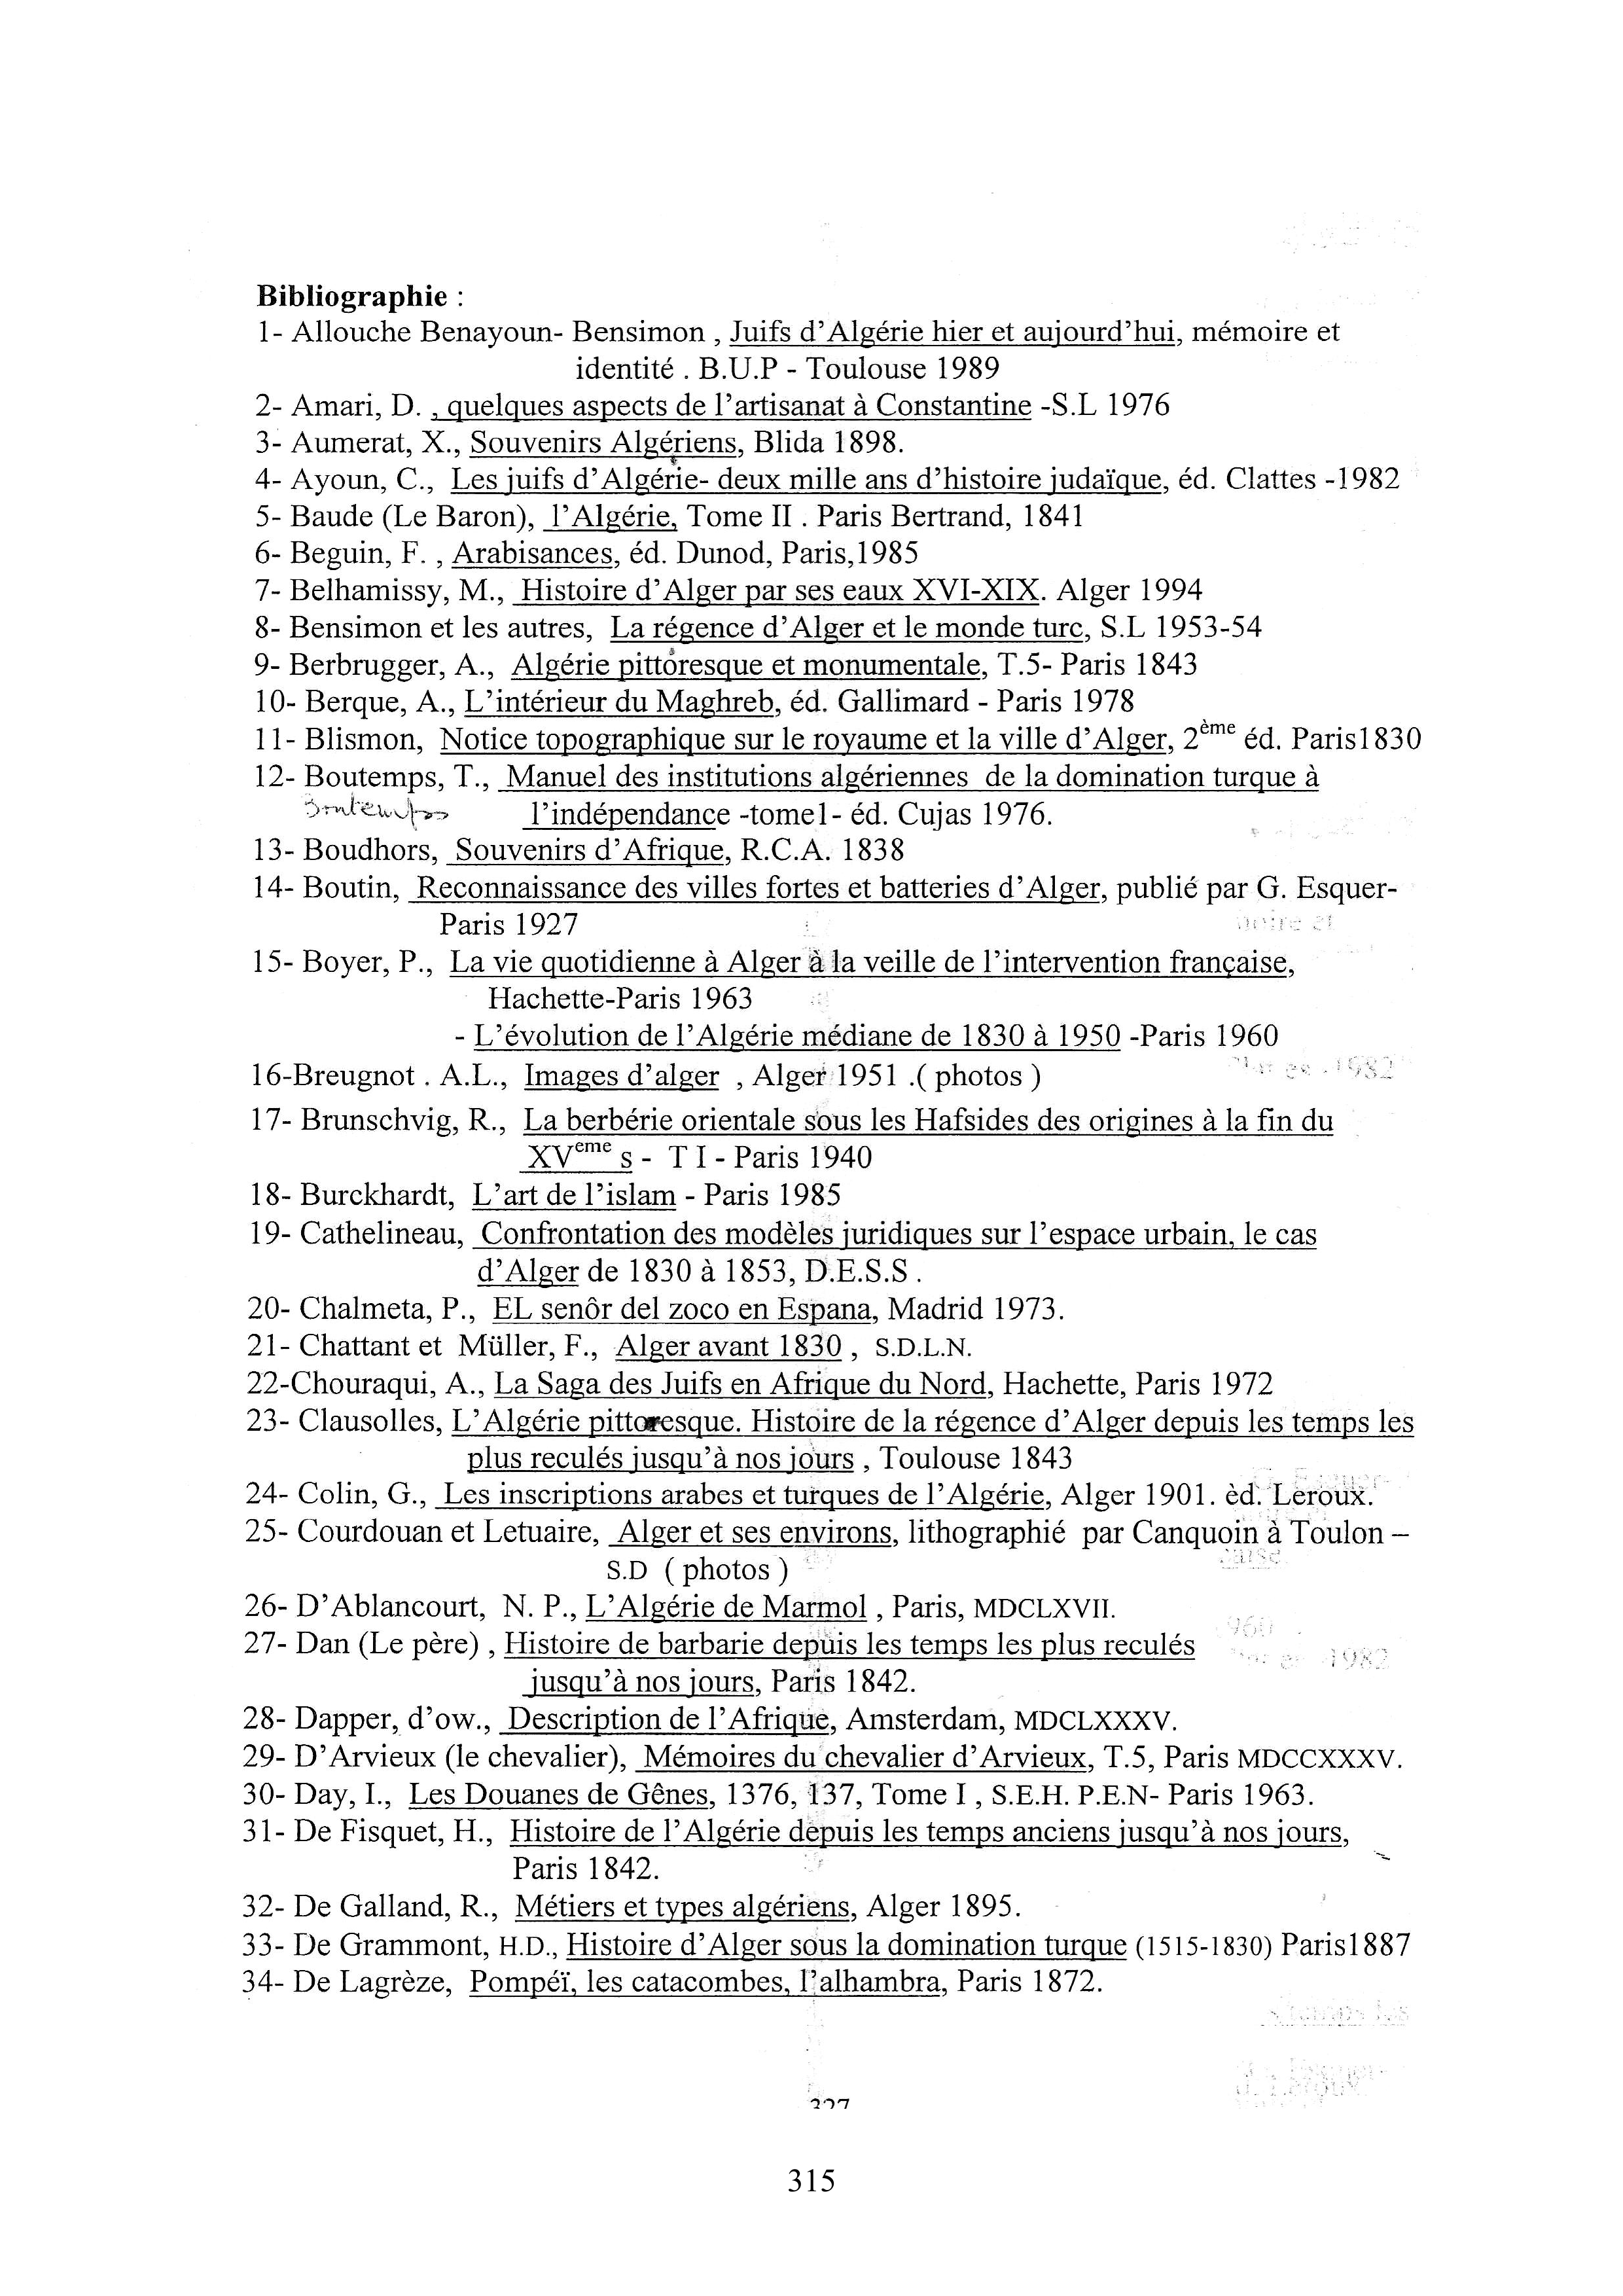 Bibliographie :
1- Allouche Benayoun- Bensimon , Juifs d'Algérie hier et aujourd'hui, mémoire et
identité . B.U.P - Toulouse 1989
2- Amari, D. , quelques aspects de l'artisanat à Constantine -S.L 1976
3- Aumerat, X., Souvenirs Algériens, Blida 1898.
4- Ayoun, C., Les juifs d'Algérie- deux mille ans d'histoire judaïque, éd. Clattes -1982
5- Baude (Le Baron), l'Algérie, Tome II . Paris Bertrand, 1841
6- Beguin, F. , Arabisances, éd. Dunod, Paris,1985
7- Belhamissy, M., Histoire d'Alger par ses eaux XVI-XIX. Alger 1994
8- Bensimon et les autres, La régence d'Alger et le monde turc, S.L 1953-54
9- Berbrugger, A., Algérie pittoresque et monumentale, T.5- Paris 1843
10- Berque, A., L'intérieur du Maghreb, éd. Gallimard - Paris 1978
11- Blismon, Notice topographique sur le royaume et la ville d'Alger, 2ème éd. Paris1830
12- Boutemps, T., Manuel des institutions algériennes de la domination turque à
Bontemps l'indépendance -tome1- éd. Cujas 1976.
13- Boudhors, Souvenirs d'Afrique, R.C.A. 1838
14- Boutin, Reconnaissance des villes fortes et batteries d'Alger, publié par G. Esquer-
Paris 1927
15- Boyer, P., La vie quotidienne à Alger à la veille de l'intervention française,
Hachette-Paris 1963
- L'évolution de l'Algérie médiane de 1830 à 1950 -Paris 1960
16-Breugnot . A.L., Images d'alger , Alger 1951 .( photos )
17- Brunschvig, R., La berbérie orientale sous les Hafsides des origines à la fin du
XVeme s - T I - Paris 1940
18- Burckhardt, L'art de l'islam - Paris 1985
19- Cathelineau, Confrontation des modèles juridiques sur l'espace urbain, le cas
d'Alger de 1830 à 1853, D.E.S.S .
20- Chalmeta, P., EL senôr del zoco en Espana, Madrid 1973.
21- Chattant et Müller, F., Alger avant 1830 , S.D.L.N.
22-Chouraqui, A., La Saga des Juifs en Afrique du Nord, Hachette, Paris 1972
23- Clausolles, L'Algérie pittoresque. Histoire de la régence d'Alger depuis les temps les
plus reculés jusqu'à nos jours , Toulouse 1843
24- Colin, G., Les inscriptions arabes et turques de l'Algérie, Alger 1901. èd. Leroux.
25- Courdouan et Letuaire, Alger et ses environs, lithographié par Canquoin à Toulon –
S.D ( photos )
26- D'Ablancourt, N. P., L'Algérie de Marmol , Paris, MDCLXVII.
27- Dan (Le père) , Histoire de barbarie depuis les temps les plus reculés
jusqu'à nos jours, Paris 1842.
28- Dapper, d'ow., Description de l'Afrique, Amsterdam, MDCLXXXV.
29- D'Arvieux (le chevalier), Mémoires du chevalier d'Arvieux, T.5, Paris MDCCXXXV.
30- Day, I., Les Douanes de Gênes, 1376, 137, Tome I , S.E.H. P.E.N- Paris 1963.
31- De Fisquet, H., Histoire de l'Algérie depuis les temps anciens jusqu'à nos jours,
Paris 1842.
32- De Galland, R., Métiers et types algériens, Alger 1895.
33- De Grammont, H.D., Histoire d'Alger sous la domination turque (1515-1830) Paris1887
34- De Lagrèze, Pompéï, les catacombes, l'alhambra, Paris 1872.
327
315